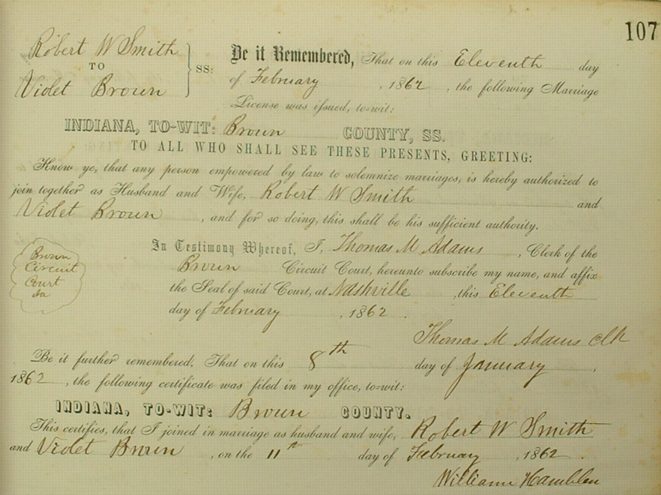 107
Robert W Smith
TO
Violet Brown
SS:
Be it Remembered, That on this Eleventh day
of February, 1862, the following Marriage
License was issued, to-wit:
INDIANA, TO-WIT: Brown COUNTY, SS.
TO ALL WHO SHALL SEE THESE PRESENTS, GREETING:
Know ye, that any person empowered by law to solemnize marriages, is hereby authorized to
join together as Husband and Wife, Robert W Smith and
Violet Brown, and for so doing, this shall be his sufficient authority.
In Testimony Whereof, I, Thomas M Adams, Clerk of the
Brown Circuit Court, hereunto subscribe my name, and affix
the Seal of said Court, at Nashville, this Eleventh
day of February, 1862.
Brown
Circuit
Court
Ia
Thomas M Adams Clk
Be it further remembered, That on this 8th day of January,
1862, the following certificate was filed in my office, to-wit:
INDIANA, TO-WIT: Brown COUNTY.
This certifies, that I joined in marriage as husband and wife, Robert W Smith
and Violet Brown, on the 11th day of February, 1862.
William Hamblen